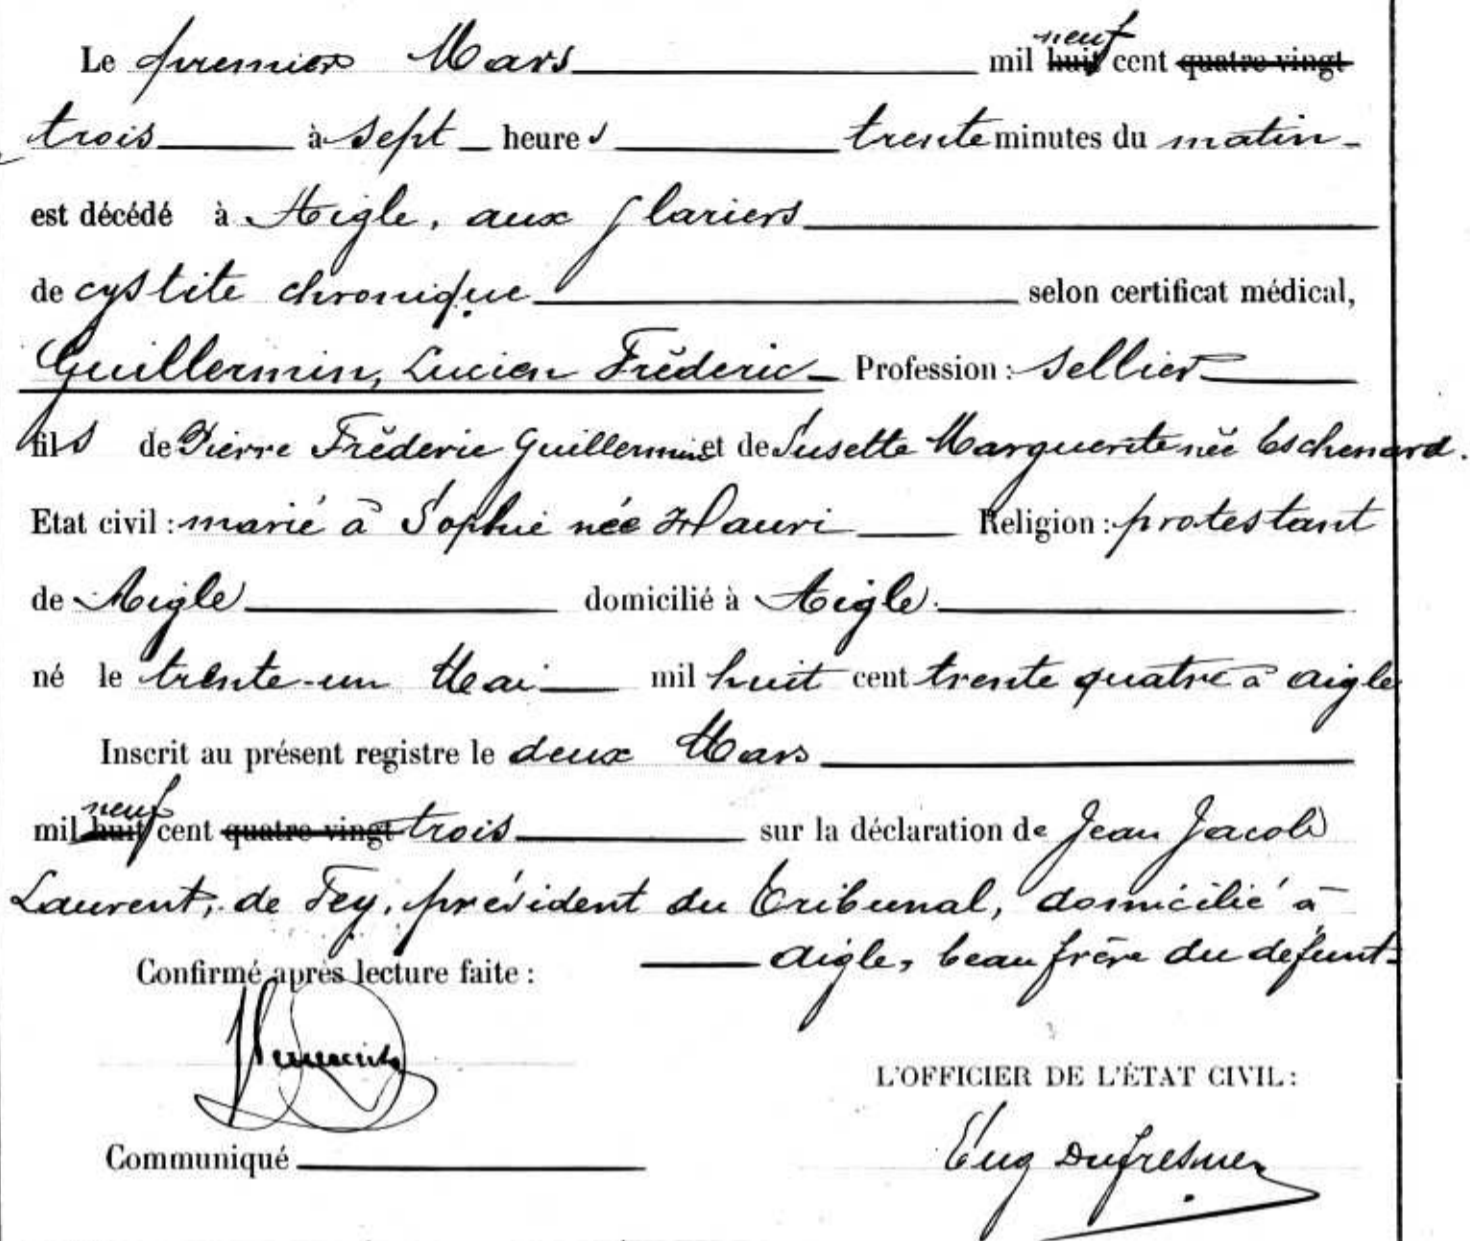 Le premier Mars mil neuf huit cent quatre vingt
trois à sept heures trente minutes du matin
est décédé à Aigle, aux Glariers
de cystite chronique selon certificat médical,
Guillermin, Lucien Fréderic Profession : sellier
fils de Pierre Fréderic Guillermin et de Susette Marguerite née Eschenard.
Etat civil : marié à Sophie née Hauri Religion : protestant
de Aigle domicilié à Aigle.
né le trente-un Mai mil huit cent trente quatre à Aigle
Inscrit au présent registre le deux Mars
mil neuf huit cent quatre vingt trois sur la déclaration de Jean Jacob
Laurent, de Fey, président du Tribunal, domicilié à
Aigle, beau frère du défunt.
Confirmé après lecture faite :
L'OFFICIER DE L'ÉTAT CIVIL :
Communiqué
Eug Dufresne